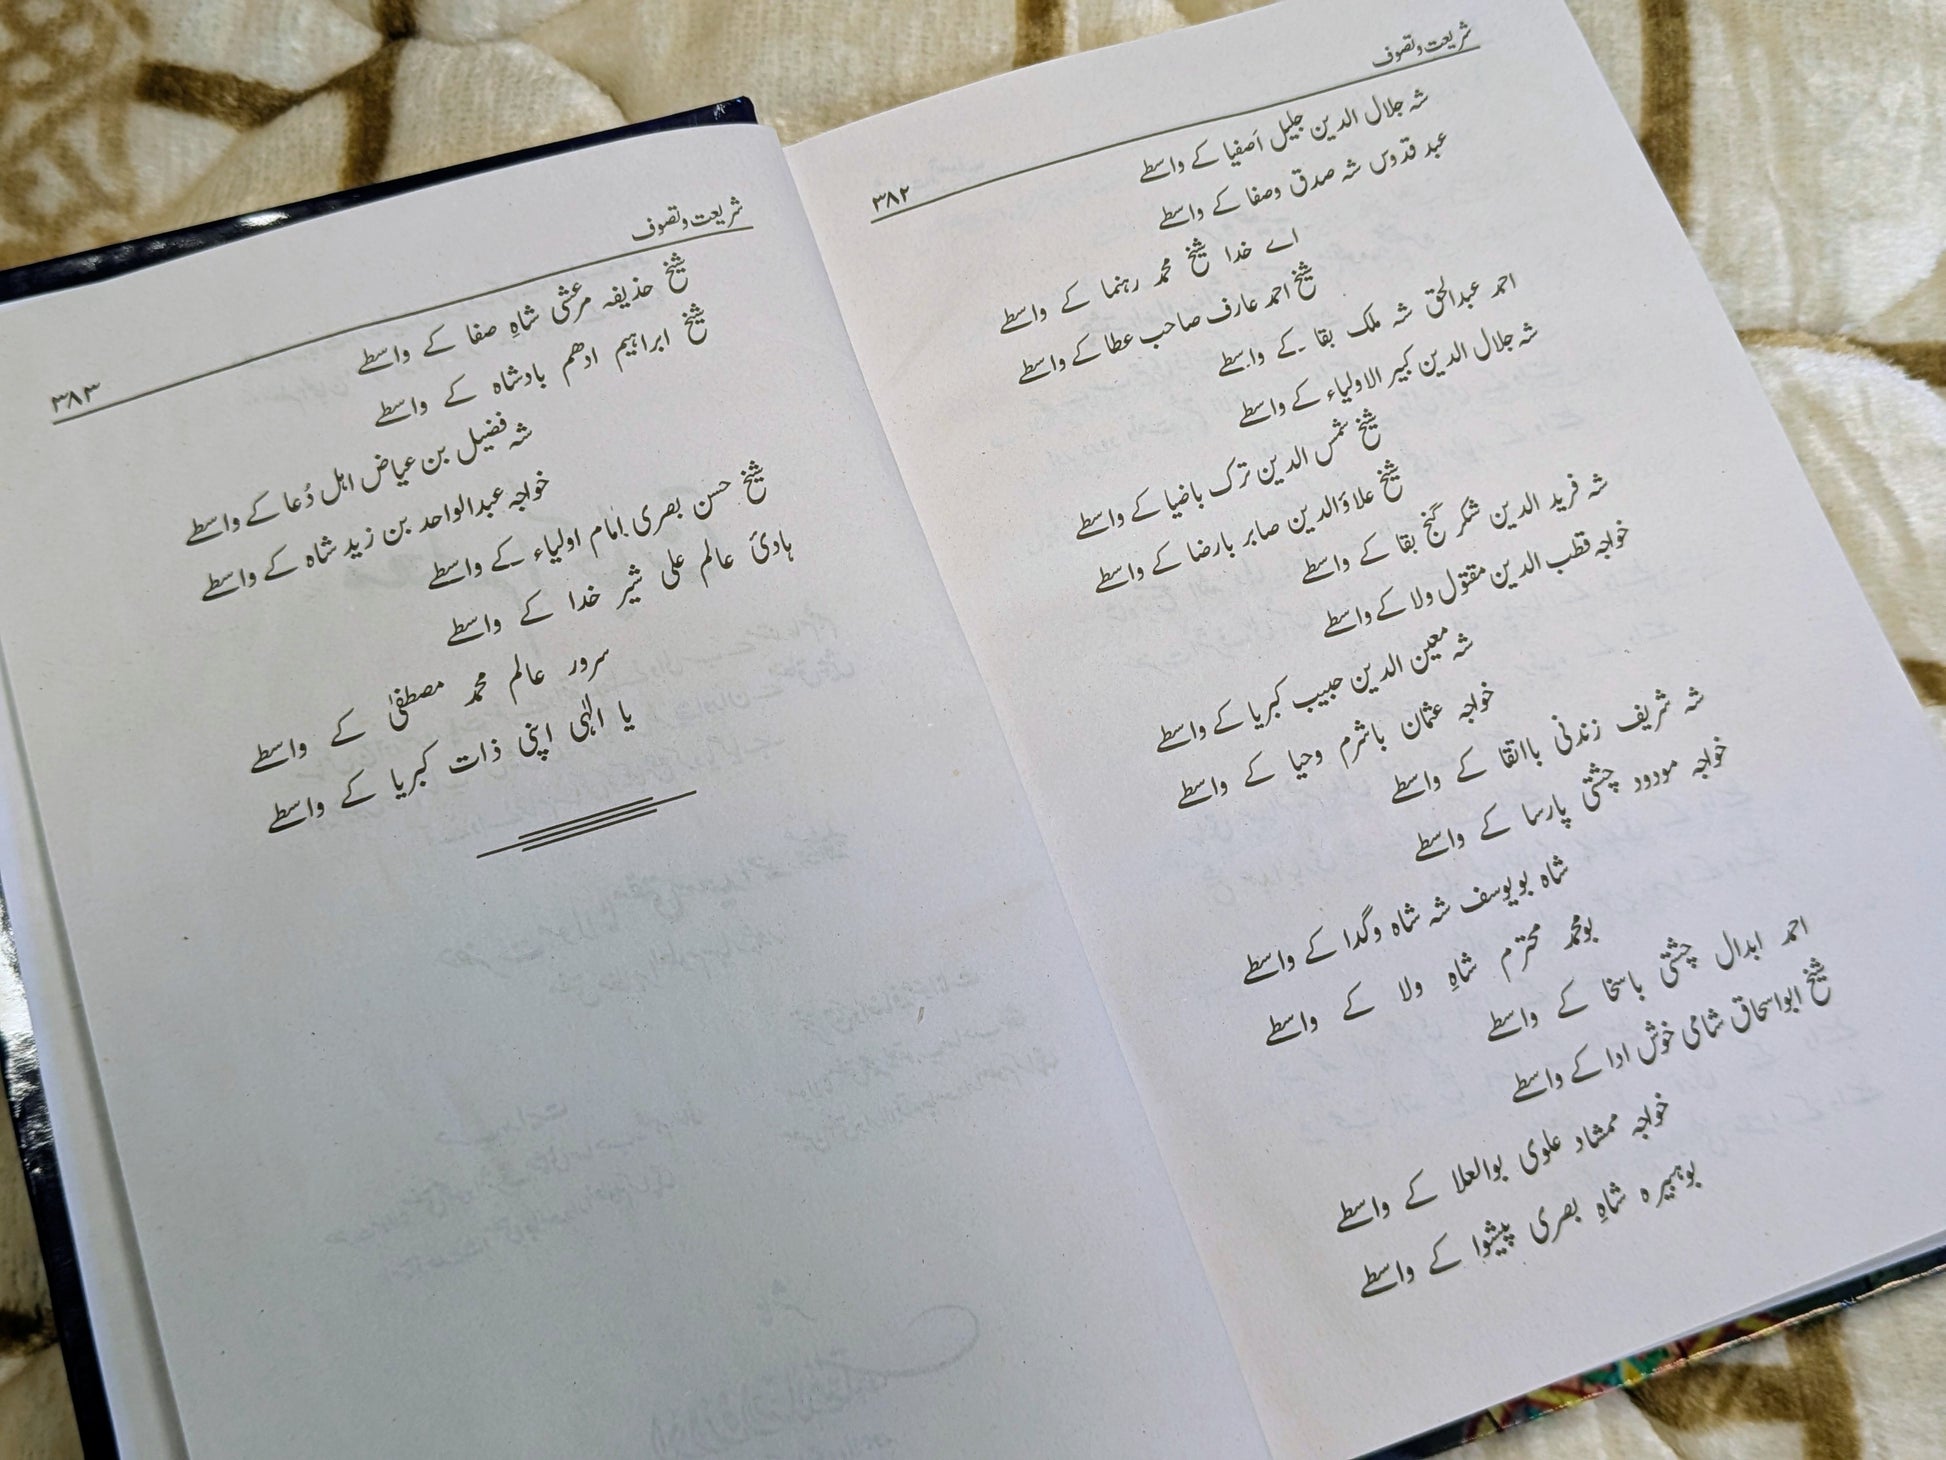 شریعت و تصوف
۳۸۲
شہ جلال الدین جلیل اَصفیا کے واسطے
عبد قدوس شہ صدق وصفا کے واسطے
اے خدا شیخ محمد رہنما کے واسطے
شیخ احمد عارف صاحب عطا کے واسطے
احمد عبدالحق شہ ملک بقا کے واسطے
شہ جلال الدین کبیر الاولیاء کے واسطے
شیخ شمس الدین ترک باضیا کے واسطے
شیخ علاؤالدین صابر بارضا کے واسطے
شہ فرید الدین شکر گنج بقا کے واسطے
خواجہ قطب الدین مقتول ولا کے واسطے
شہ معین الدین حبیب کبریا کے واسطے
خواجہ عثمان باشرم وحیا کے واسطے
شہ شریف زندنی بااتقا کے واسطے
خواجہ مودود چشتی پارسا کے واسطے
شاہ بویوسف شہ شاہ وگدا کے واسطے
بومحمد محترم شاہِ ولا کے واسطے
احمد ابدال چشتی باسخا کے واسطے
شیخ ابواسحاق شامی خوش ادا کے واسطے
خواجہ ممشاد علوی بوالعلا کے واسطے
بوہبیرہ شاہِ بصری پیشوا کے واسطے
شریعت و تصوف
۳۸۳
شیخ حذیفہ مرعشی شاہِ صفا کے واسطے
شیخ ابراہیم ادھم بادشاہ کے واسطے
شہ فضیل بن عیاض اہل دُعا کے واسطے
خواجہ عبدالواحد بن زید شاہ کے واسطے
شیخ حسن بصری امام اولیاء کے واسطے
ہادیٔ عالم علی شیر خدا کے واسطے
سرور عالم محمد مصطفیٰ کے واسطے
یا الٰہی اپنی ذات کبریا کے واسطے